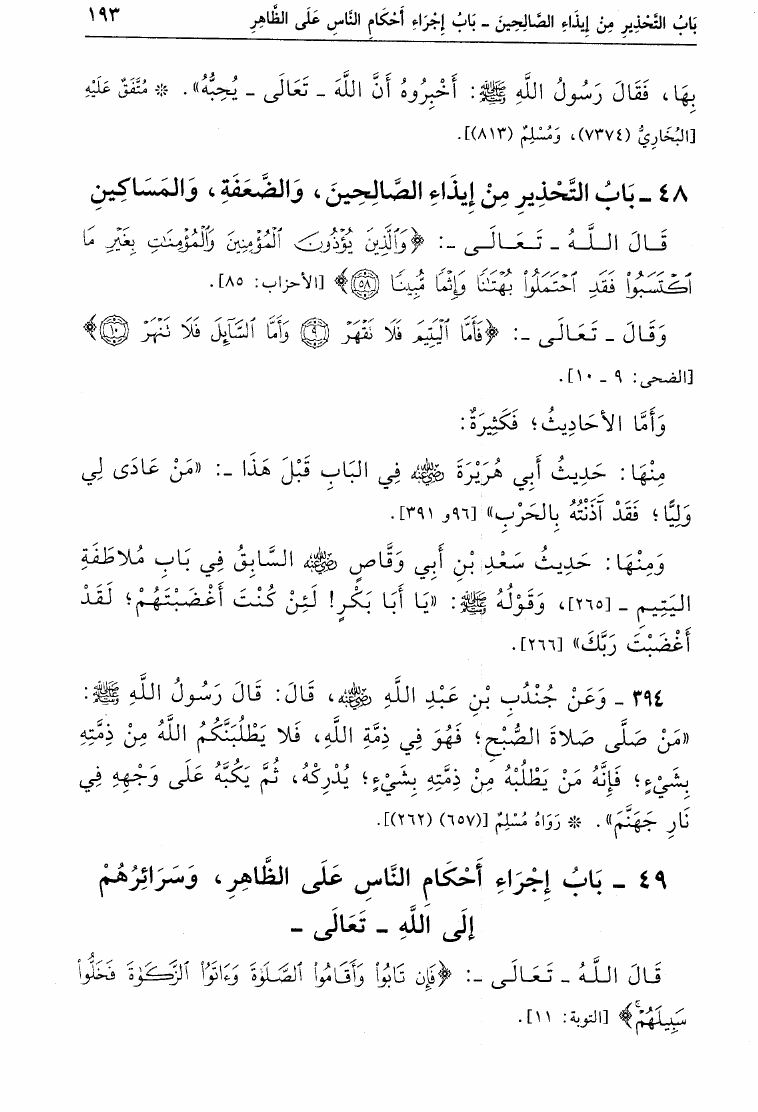 بَابُ التَّحْذِيرِ مِنْ إِيذَاءِ الصَّالِحِينَ ـ بَابُ إِجْرَاءِ أَحْكَامِ النَّاسِ عَلَى الظَّاهِرِ ١٩٣
بِهَا، فَقَالَ رَسُولُ اللَّهِ ﷺ: أَخْبِرُوهُ أَنَّ اللَّهَ ـ تَعَالَى ـ يُحِبُّهُ». * مُتَّفَقٌ عَلَيْهِ
[البُخَارِيُّ (٧٣٧٤)، وَمُسْلِمٌ (٨١٣)].
٤٨ ـ بَابُ التَّحْذِيرِ مِنْ إِيذَاءِ الصَّالِحِينَ، وَالضَّعَفَةِ، وَالمَسَاكِينِ
قَالَ اللَّهُ ـ تَعَالَى ـ: ﴿وَٱلَّذِينَ يُؤْذُونَ ٱلْمُؤْمِنِينَ وَٱلْمُؤْمِنَٰتِ بِغَيْرِ مَا
ٱكْتَسَبُوا۟ فَقَدِ ٱحْتَمَلُوا۟ بُهْتَٰنًا وَإِثْمًا مُّبِينًا ۝٥٨﴾ [الأحزاب: ٨٥].
وَقَالَ ـ تَعَالَى ـ: ﴿فَأَمَّا ٱلْيَتِيمَ فَلَا نَقْهَرْ ۝٩ وَأَمَّا ٱلسَّآئِلَ فَلَا نَنْهَرْ ۝١٠﴾
[الضحى: ٩ ـ ١٠].
وَأَمَّا الأَحَادِيثُ؛ فَكَثِيرَةٌ:
مِنْهَا: حَدِيثُ أَبِي هُرَيْرَةَ رضي الله عنه فِي البَابِ قَبْلَ هَذَا ـ: «مَنْ عَادَى لِي
وَلِيًّا؛ فَقَدْ آذَنْتُهُ بِالحَرْبِ» [٩٦و ٣٩١].
وَمِنْهَا: حَدِيثُ سَعْدِ بْنِ أَبِي وَقَّاصٍ رضي الله عنه السَّابِقُ فِي بَابِ مُلاطَفَةِ
اليَتِيمِ ـ [٢٦٥]، وَقَوْلُهُ ﷺ: «يَا أَبَا بَكْرٍ! لَئِنْ كُنْتَ أَغْضَبْتَهُمْ؛ لَقَدْ
أَغْضَبْتَ رَبَّكَ» [٢٦٦].
٣٩٤ ـ وَعَنْ جُنْدُبِ بْنِ عَبْدِ اللَّهِ رضي الله عنه، قَالَ: قَالَ رَسُولُ اللَّهِ ﷺ:
«مَنْ صَلَّى صَلاةَ الصُّبْحِ؛ فَهُوَ فِي ذِمَّةِ اللَّهِ، فَلا يَطْلُبَنَّكُمُ اللَّهُ مِنْ ذِمَّتِهِ
بِشَيْءٍ؛ فَإِنَّهُ مَنْ يَطْلُبْهُ مِنْ ذِمَّتِهِ بِشَيْءٍ؛ يُدْرِكْهُ، ثُمَّ يَكُبَّهُ عَلَى وَجْهِهِ فِي
نَارِ جَهَنَّمَ». * رَوَاهُ مُسْلِمٌ [(٦٥٧) (٢٦٢)].
٤٩ ـ بَابُ إِجْرَاءِ أَحْكَامِ النَّاسِ عَلَى الظَّاهِرِ، وَسَرَائِرُهُمْ
إِلَى اللَّهِ ـ تَعَالَى ـ
قَالَ اللَّهُ ـ تَعَالَى ـ: ﴿فَإِن تَابُوا۟ وَأَقَامُوا۟ ٱلصَّلَوٰةَ وَءَاتَوُا۟ ٱلزَّكَوٰةَ فَخَلُّوا۟
سَبِيلَهُمْ﴾ [التوبة: ١١].